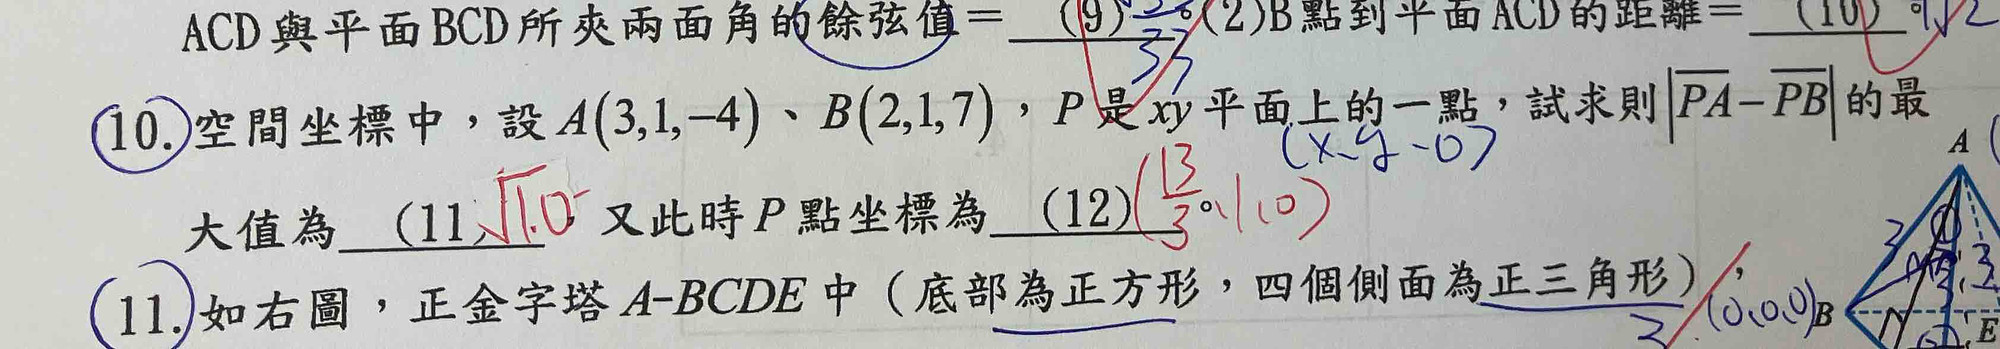 ACD與平面BCD所夾兩面角的餘弦值=  (9)  。(2)B點到平面ACD的距離=  (10)  。√2
33
10. 空間坐標中，設A(3,1,−4)、B(2,1,7)，P是xy平面上的一點，試求則|PA−PB|的最
(x、y、0)
大值為  (11)  √10 又此時P點坐標為  (12)  。(13/3, 1, 0)
11. 如右圖，正金字塔A-BCDE中（底部為正方形，四個側面為正三角形），
A
3
3
2
(0,0,0)
B
E